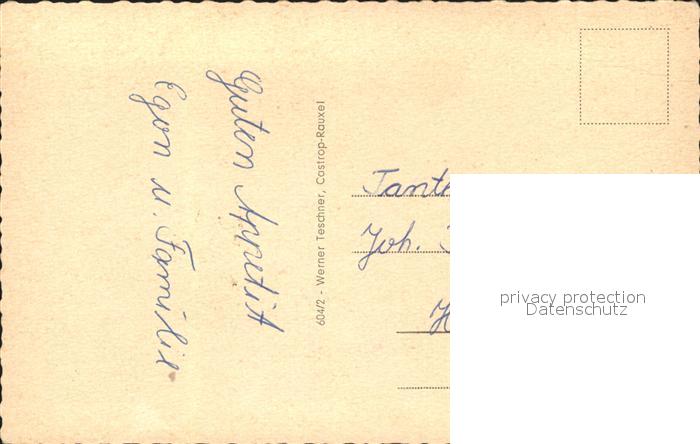 Guten Appetit
Egon u. Familie
604/2 - Werner Teschner, Castrop-Rauxel
Tante
Joh.
privacy protection
Datenschutz